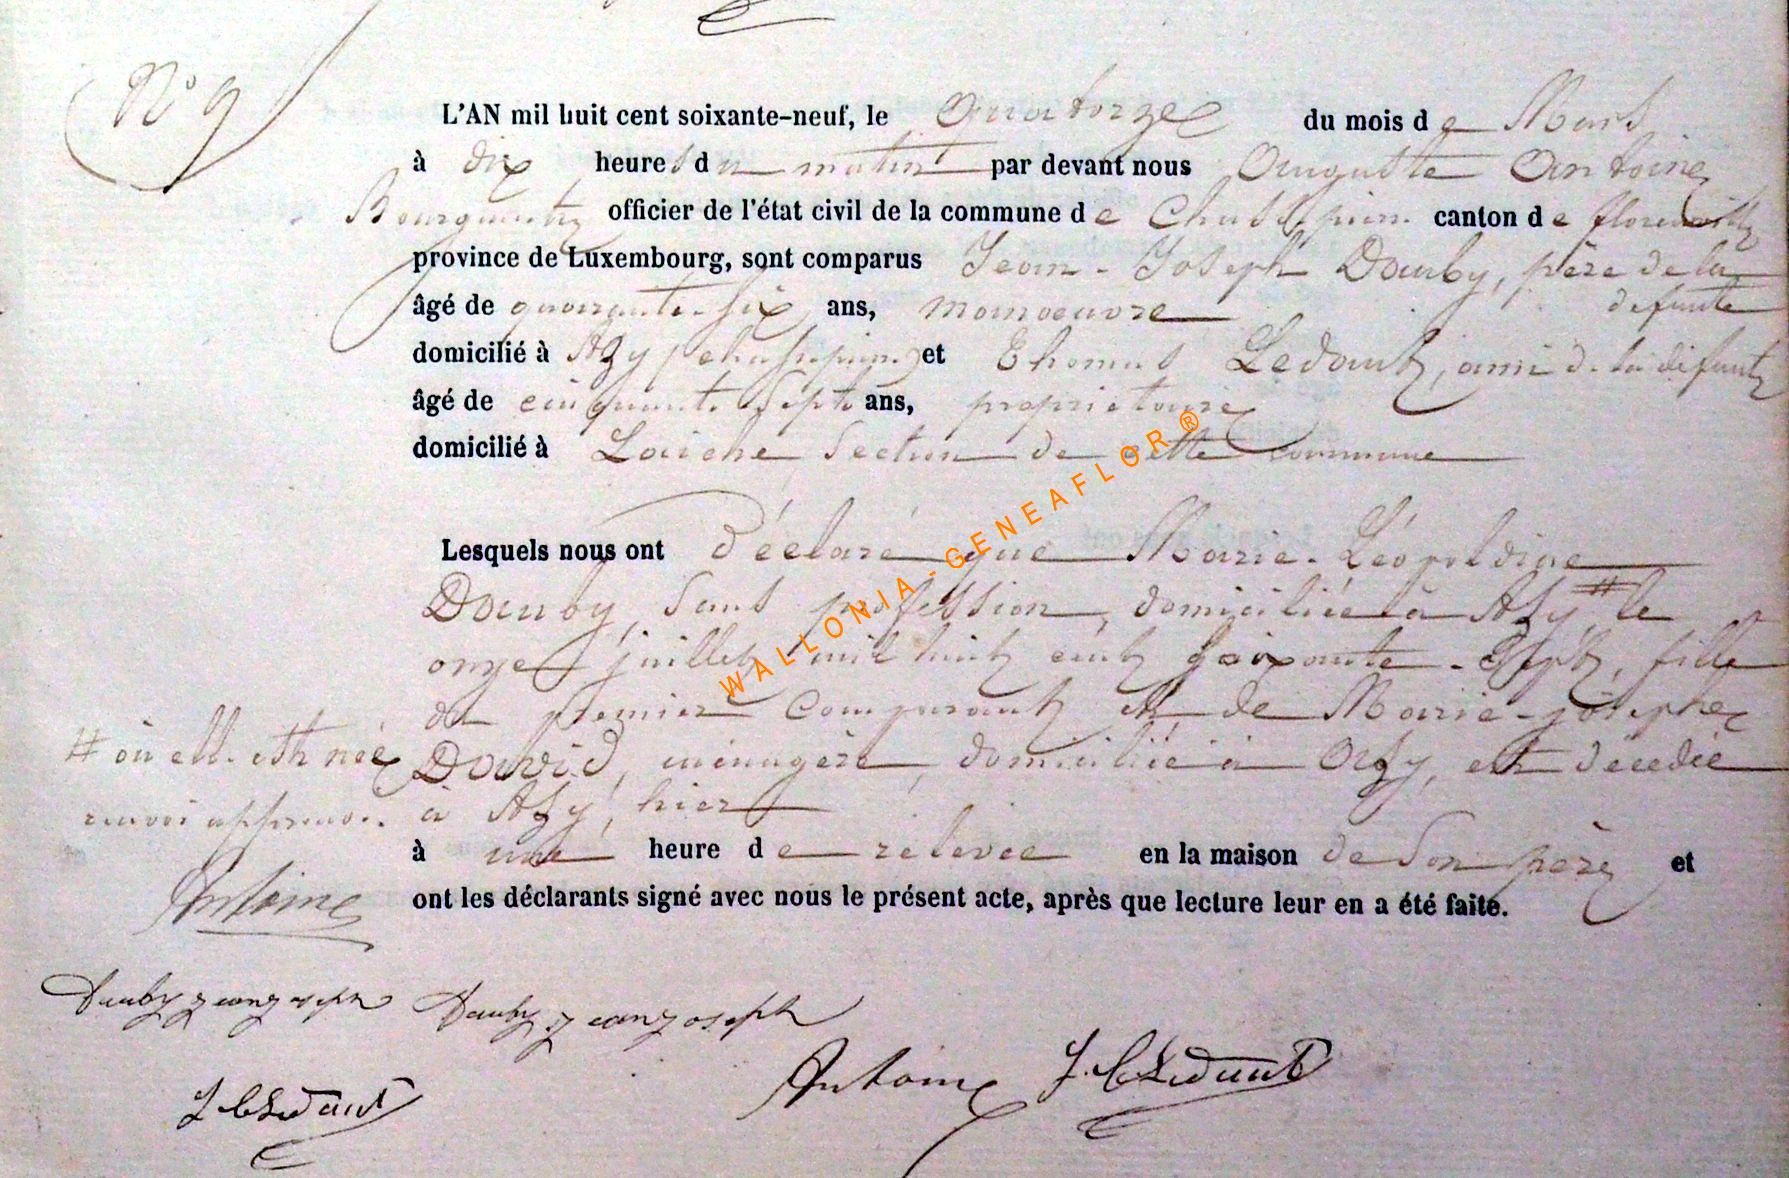 N° 9
L'AN mil huit cent soixante-neuf, le Quatorze du mois de Mars
à dix heures du matin par devant nous Auguste Antoine
Bourgmestre officier de l'état civil de la commune de Chassepierre canton de florenville
province de Luxembourg, sont comparus Jean-Joseph Dauby, père de la
défunte
âgé de quarante-six ans, manoeuvre
domicilié à Azy (chassepierre) et Thomas Ledant, ami de la défunte
âgé de cinquante sept ans, propriétaire
domicilié à Laiche section de cette commune
Lesquels nous ont déclaré que Marie-Léopoldine
Dauby, sans profession, domiciliée à Azy # le
onze juillet mil huit cent soixante-sept, fille
du premier comparant et de Marie-josèphe
David, ménagère, domiciliée à Azy, est décédée
à Azy, hier
# où elle est née
renvoi approuvé.
à une heure de relevée en la maison de son père et
ont les déclarants signé avec nous le présent acte, après que lecture leur en a été faite.
Antoine
Dauby jean joseph Dauby jean joseph
Antoine
Ledant
Ledant
WALLONIA-GENEAFLOR®